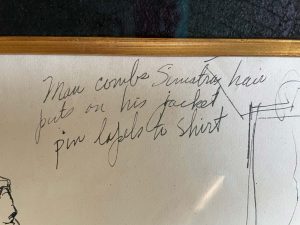 Man combs Sinatra hair
puts on his jacket
pin lapels to shirt